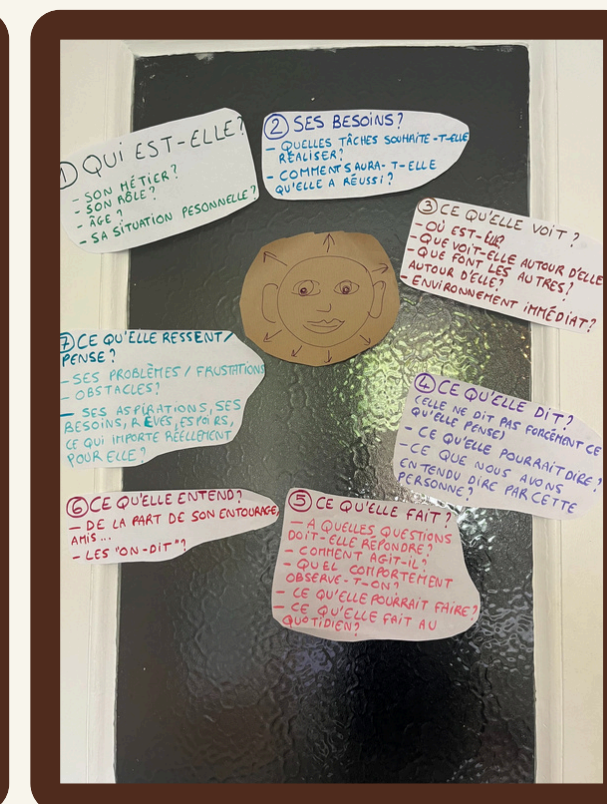 ① QUI EST-ELLE?
- SON MÉTIER?
- SON RÔLE?
- ÂGE?
- SA SITUATION PESONNELLE?
② SES BESOINS?
- QUELLES TÂCHES SOUHAITE-T-ELLE
RÉALISER?
- COMMENT SAURA-T-ELLE
QU'ELLE A RÉUSSI?
③ CE QU'ELLE VOIT?
- OÙ EST-ELLE
- QUE VOIT-ELLE AUTOUR D'ELLE
- QUE FONT LES AUTRES?
AUTOUR D'ELLE?
- ENVIRONNEMENT IMMÉDIAT?
④ CE QU'ELLE DIT?
(ELLE NE DIT PAS FORCÉMENT CE
QU'ELLE PENSE)
- CE QU'ELLE POURRAIT DIRE?
- CE QUE NOUS AVONS
ENTENDU DIRE PAR CETTE
PERSONNE?
⑤ CE QU'ELLE FAIT?
- A QUELLES QUESTIONS
DOIT-ELLE RÉPONDRE?
- COMMENT AGIT-IL?
- QUEL COMPORTEMENT
OBSERVE-T-ON?
- CE QU'ELLE POURRAIT FAIRE?
- CE QU'ELLE FAIT AU
QUOTIDIEN?
⑥ CE QU'ELLE ENTEND?
- DE LA PART DE SON ENTOURAGE,
AMIS...
- LES "ON-DIT"?
⑦ CE QU'ELLE RESSENT/
PENSE?
- SES PROBLÈMES / FRUSTATIONS
- OBSTACLES?
- SES ASPIRATIONS, SES
BESOINS, RÊVES, ESPOIRS,
CE QUI IMPORTE RÉELLEMENT
POUR ELLE?